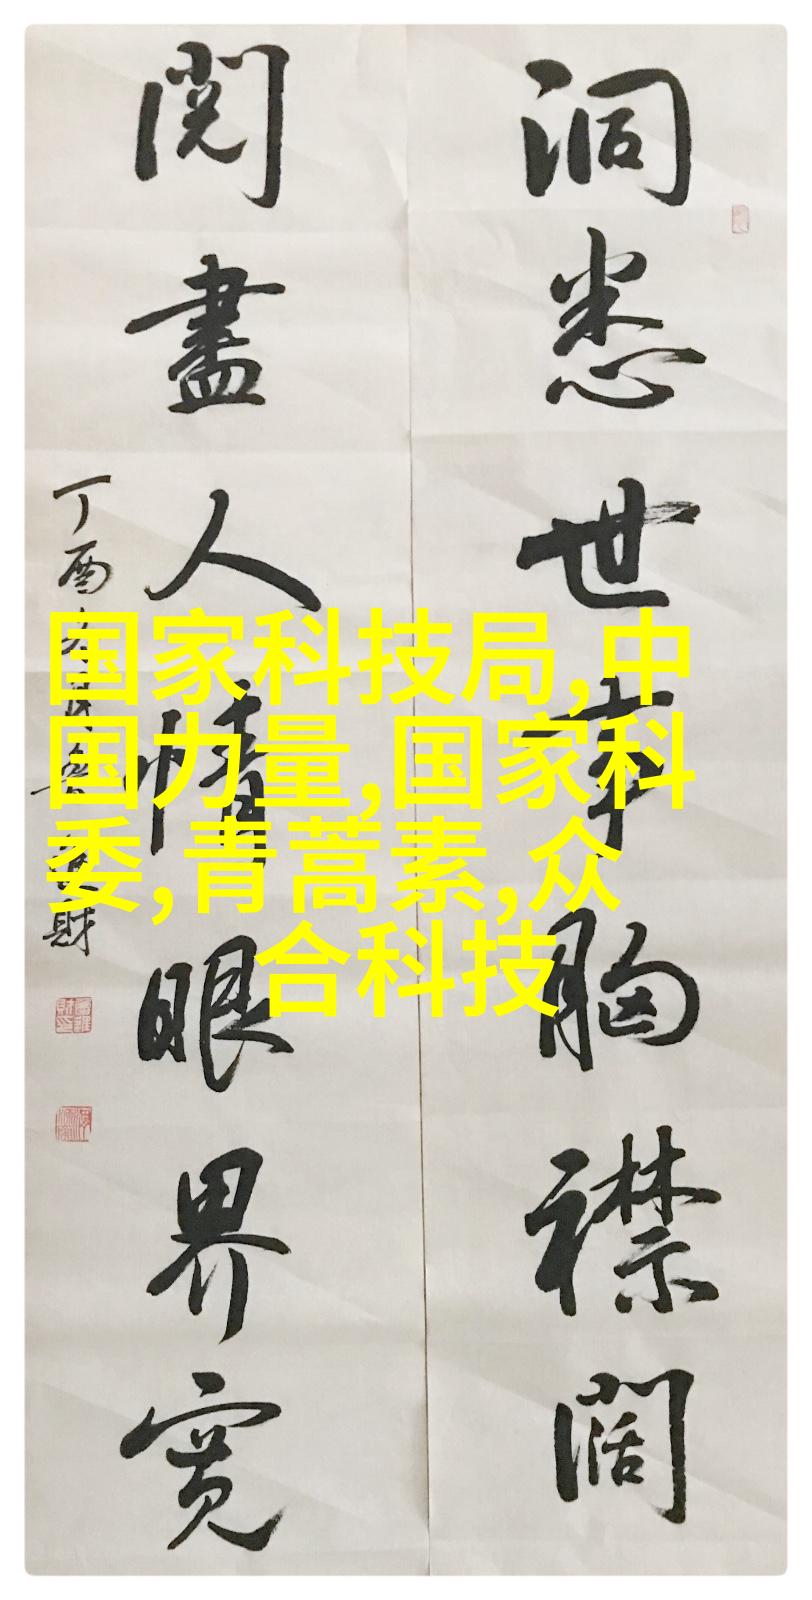 洞悉世事胸襟阔
阅尽人情眼界宽
丁酉
财
国家科技局,中
国力量,国家科
委,青蒿素,众
合科技